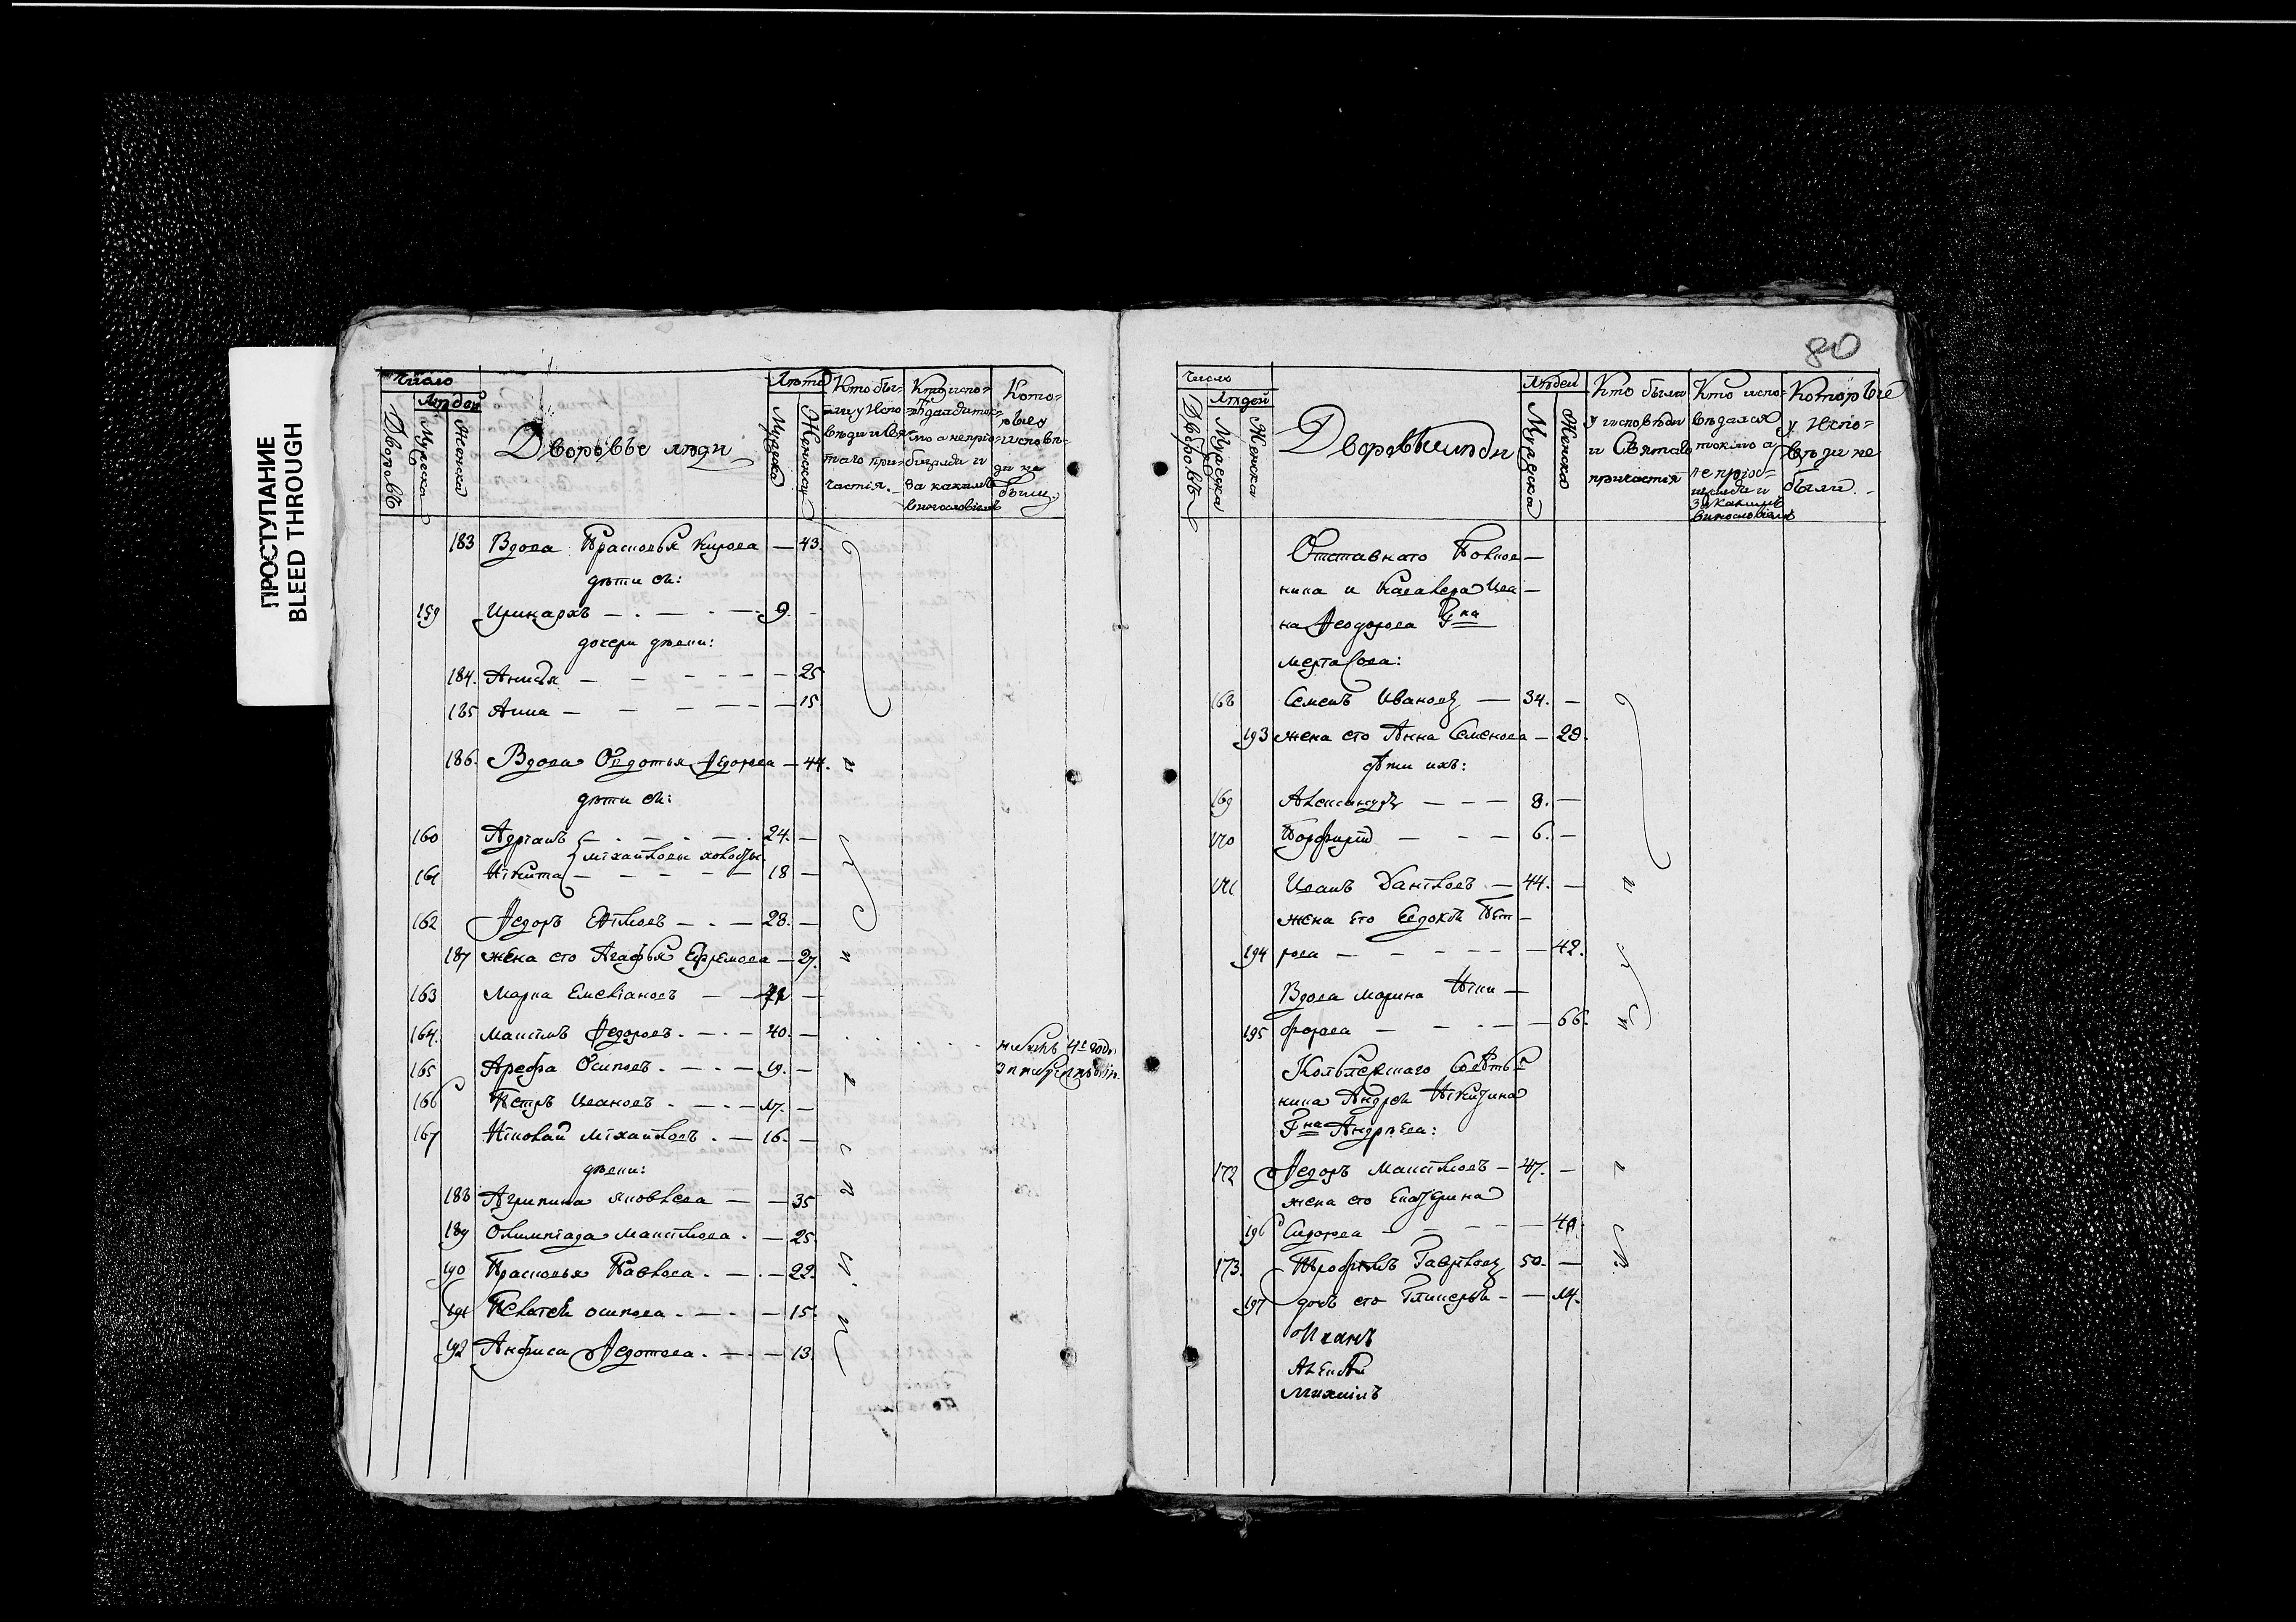 ПРОСТУПАНИЕ
BLEED THROUGH
Число
Людей
Дворовъ
Мужеска
Женска
Дворовые люди
Лѣта
Мужеска
Женска
Кто бы-
ли у Испо
вѣди и Свя
таго при-
частія.
Кто испо-
вѣдался ток-
мо а непріо-
бщился и
за какимъ
винословіемъ
Кото-
рые у
исповѣ-
ди не
были
183 Вдова Прасковья Кирова — 43.
дѣти ей:
159 Иринархъ — 9. -
дочери дѣвки:
184. Анисья — 25
185 Анна — 15
186. Вдова Овдотья Ѳедорова — 44.
дѣти ей:
160 Адріанъ — 24. —
михайловы холосты
161 Никита — 18 —
162 Ѳедоръ — 28. —
187 жена его Агафья Ефремова — 27.
163 Марка Емеліановъ —
164. Максимъ Ѳедоровъ. — 40. —
165 Арефа Осиповъ. — 19. —
166 Петръ Ивановъ. — 17. —
167 Николай Михайловъ. — 16. —
дѣвки:
188 Агрипина Яковлева — 35
189 Олимпіада Максимова. — 25
190 Прасковья Павлова. — 22.
191 Пелагея Осипова. — 15.
192 Анфиса Ѳедотова. — 13.
80
Число
Людей
Дворовъ
Мужеска
Женска
Дворовые люди
Людей
Мужеска
Женска
Кто были
у исповѣди
и Святаго
причастія
Кто испо-
вѣдался
токмо а
не пріоб-
щился и
за какимъ
винословіемъ
Которые
у Испо-
вѣди не
были.
Отставнаго Полков—
ника и Кавалера Ива—
на Ѳеодорова Гна
Мертваго:
168 Семенъ Ивановъ — 34. —
193 жена его Анна Семенова — 29.
дѣти ихъ:
169 Александръ — 8. —
170 Порфирій — 6. —
171 Иванъ Даниловъ. — 44. —
жена его Евдокія Пет—
194 рова — 42.
Вдова Марина Ники—
195 форова — 66.
Коллежскаго Совѣт
ника Андрея Никитина
Гна Андрѣева:
172 Ѳедоръ Максимовъ — 47. —
жена его Екатерина
196 Сидорова —
173. Трофимъ Гавриловъ 50. —
197 дочь его Гликерья — 14.
Иванъ
Алексѣй
Михаилъ